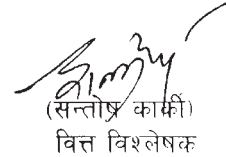 (सन्तोष कार्की)
वित्त विश्लेषक